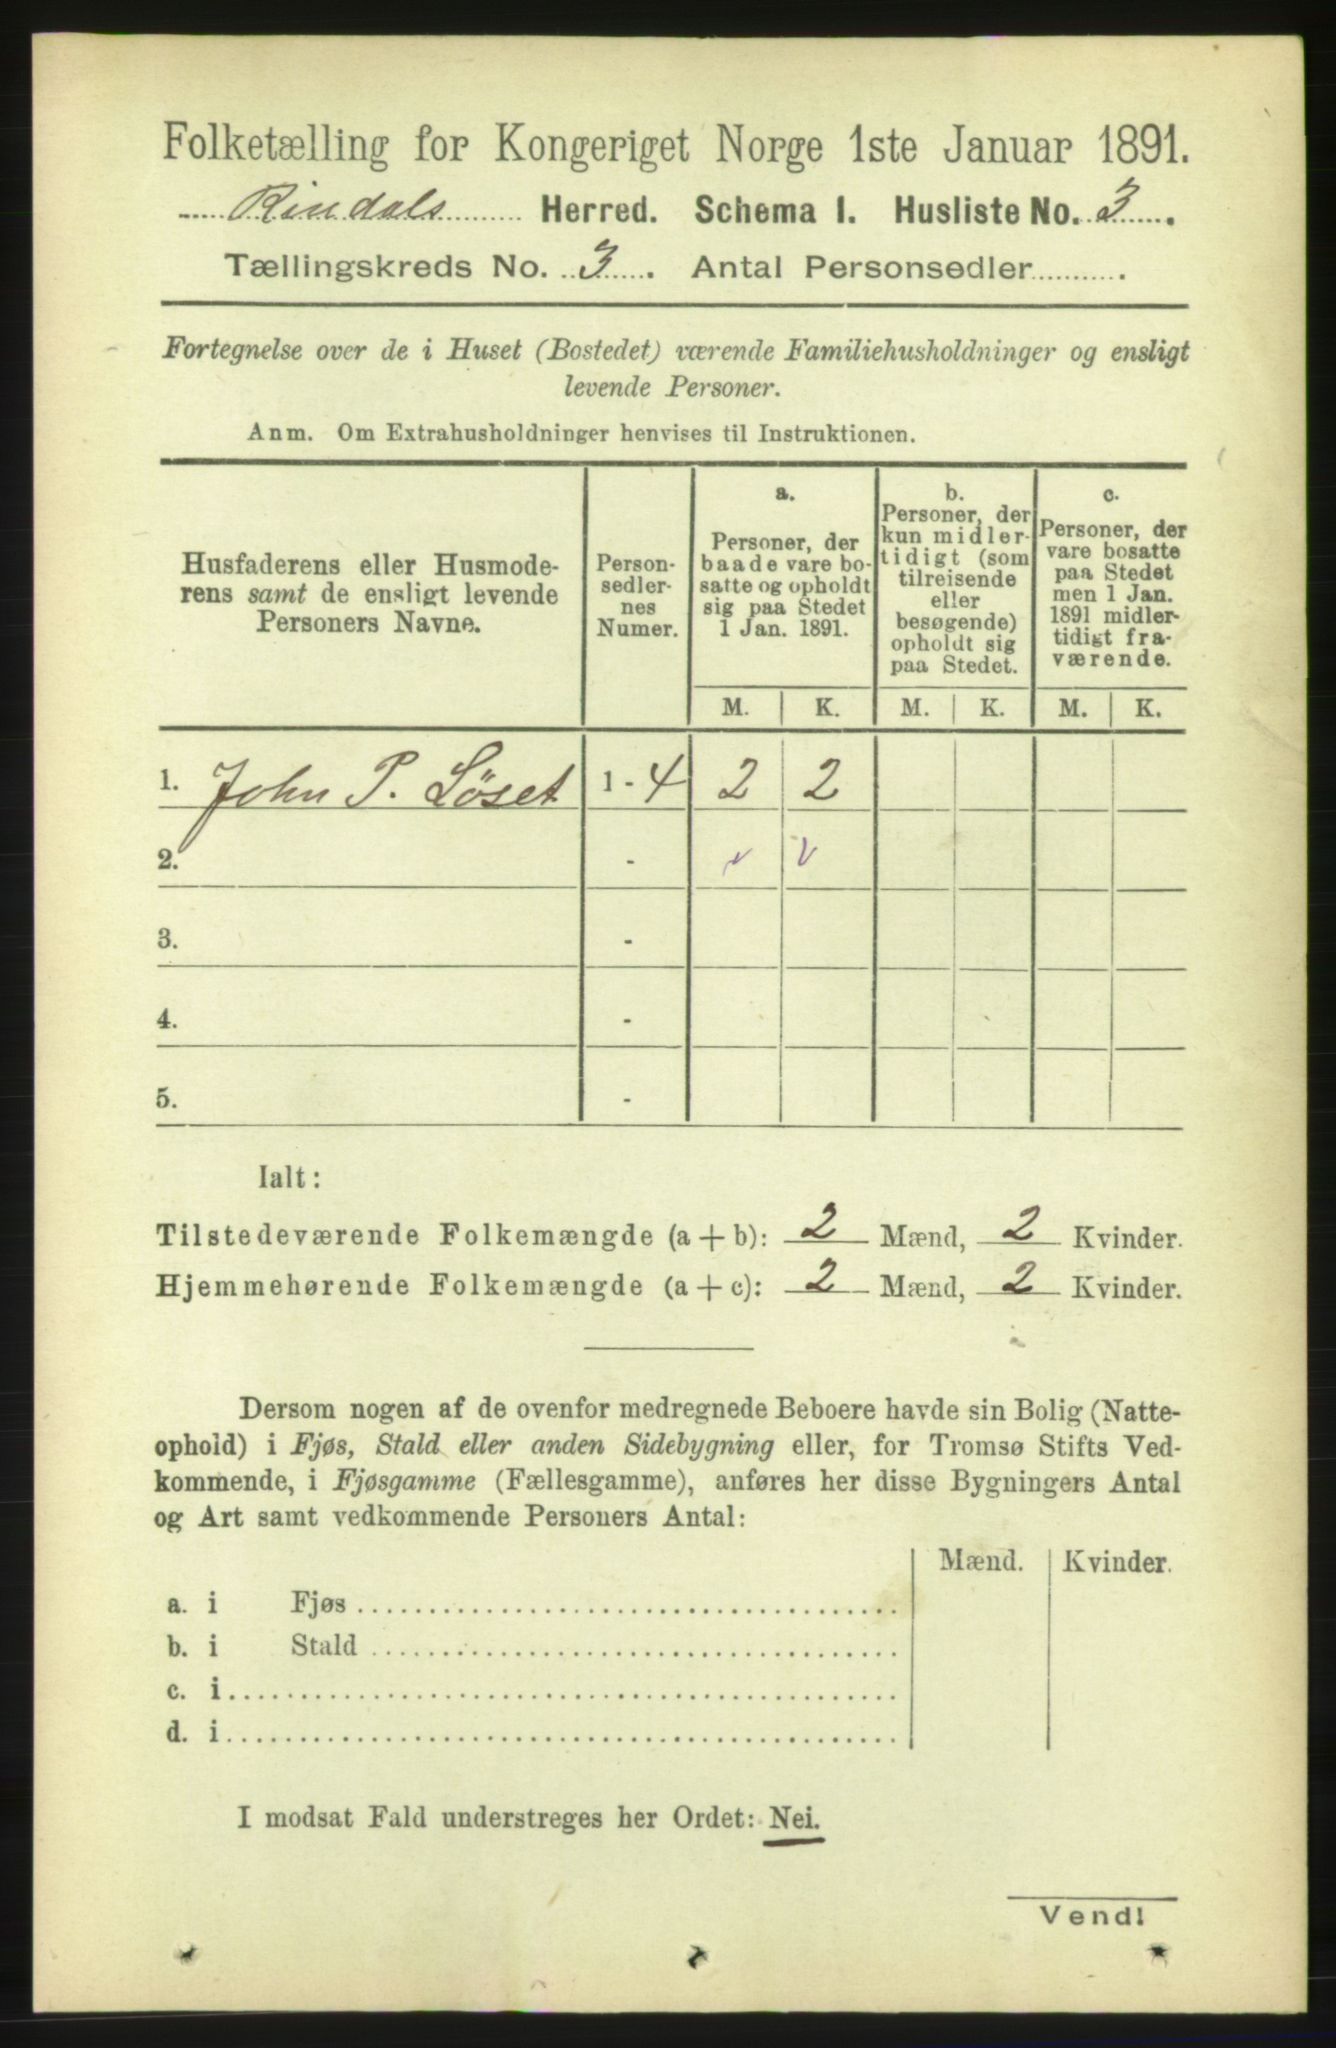 Folketælling for Kongeriget Norge 1ste Januar 1891.
Rindals Herred. Schema I. Husliste No. 3.
Tællingskreds No. 3. Antal Personsedler.
Fortegnelse over de i Huset (Bostedet) værende Familiehusholdninger og ensligt
levende Personer.
Anm. Om Extrahusholdninger henvises til Instruktionen.
Husfaderens eller Husmode-
rens samt de ensligt levende
Personers Navne.
Person-
sedler-
nes
Numer.
a.
Personer, der
baade vare bo-
satte og opholdt
sig paa Stedet
1 Jan. 1891.
b.
Personer, der
kun midler-
tidigt (som
tilreisende
eller
besøgende)
opholdt sig
paa Stedet.
c.
Personer, der
vare bosatte
paa Stedet
men 1 Jan.
1891 midler-
tidigt fra-
værende.
M. K. M. K. M. K.
1. John P. Löset 1 - 4 2 2
2. - v v
3. -
4. -
5. -
Ialt:
Tilstedeværende Folkemængde (a + b): 2 Mænd, 2 Kvinder.
Hjemmehørende Folkemængde (a + c): 2 Mænd, 2 Kvinder.
Dersom nogen af de ovenfor medregnede Beboere havde sin Bolig (Natte-
ophold) i Fjøs, Stald eller anden Sidebygning eller, for Tromsø Stifts Ved-
kommende, i Fjøsgamme (Fællesgamme), anføres her disse Bygningers Antal
og Art samt vedkommende Personers Antal:
Mænd. Kvinder.
a. i Fjøs
b. i Stald
c. i
d. i
I modsat Fald understreges her Ordet: Nei.
Vend!